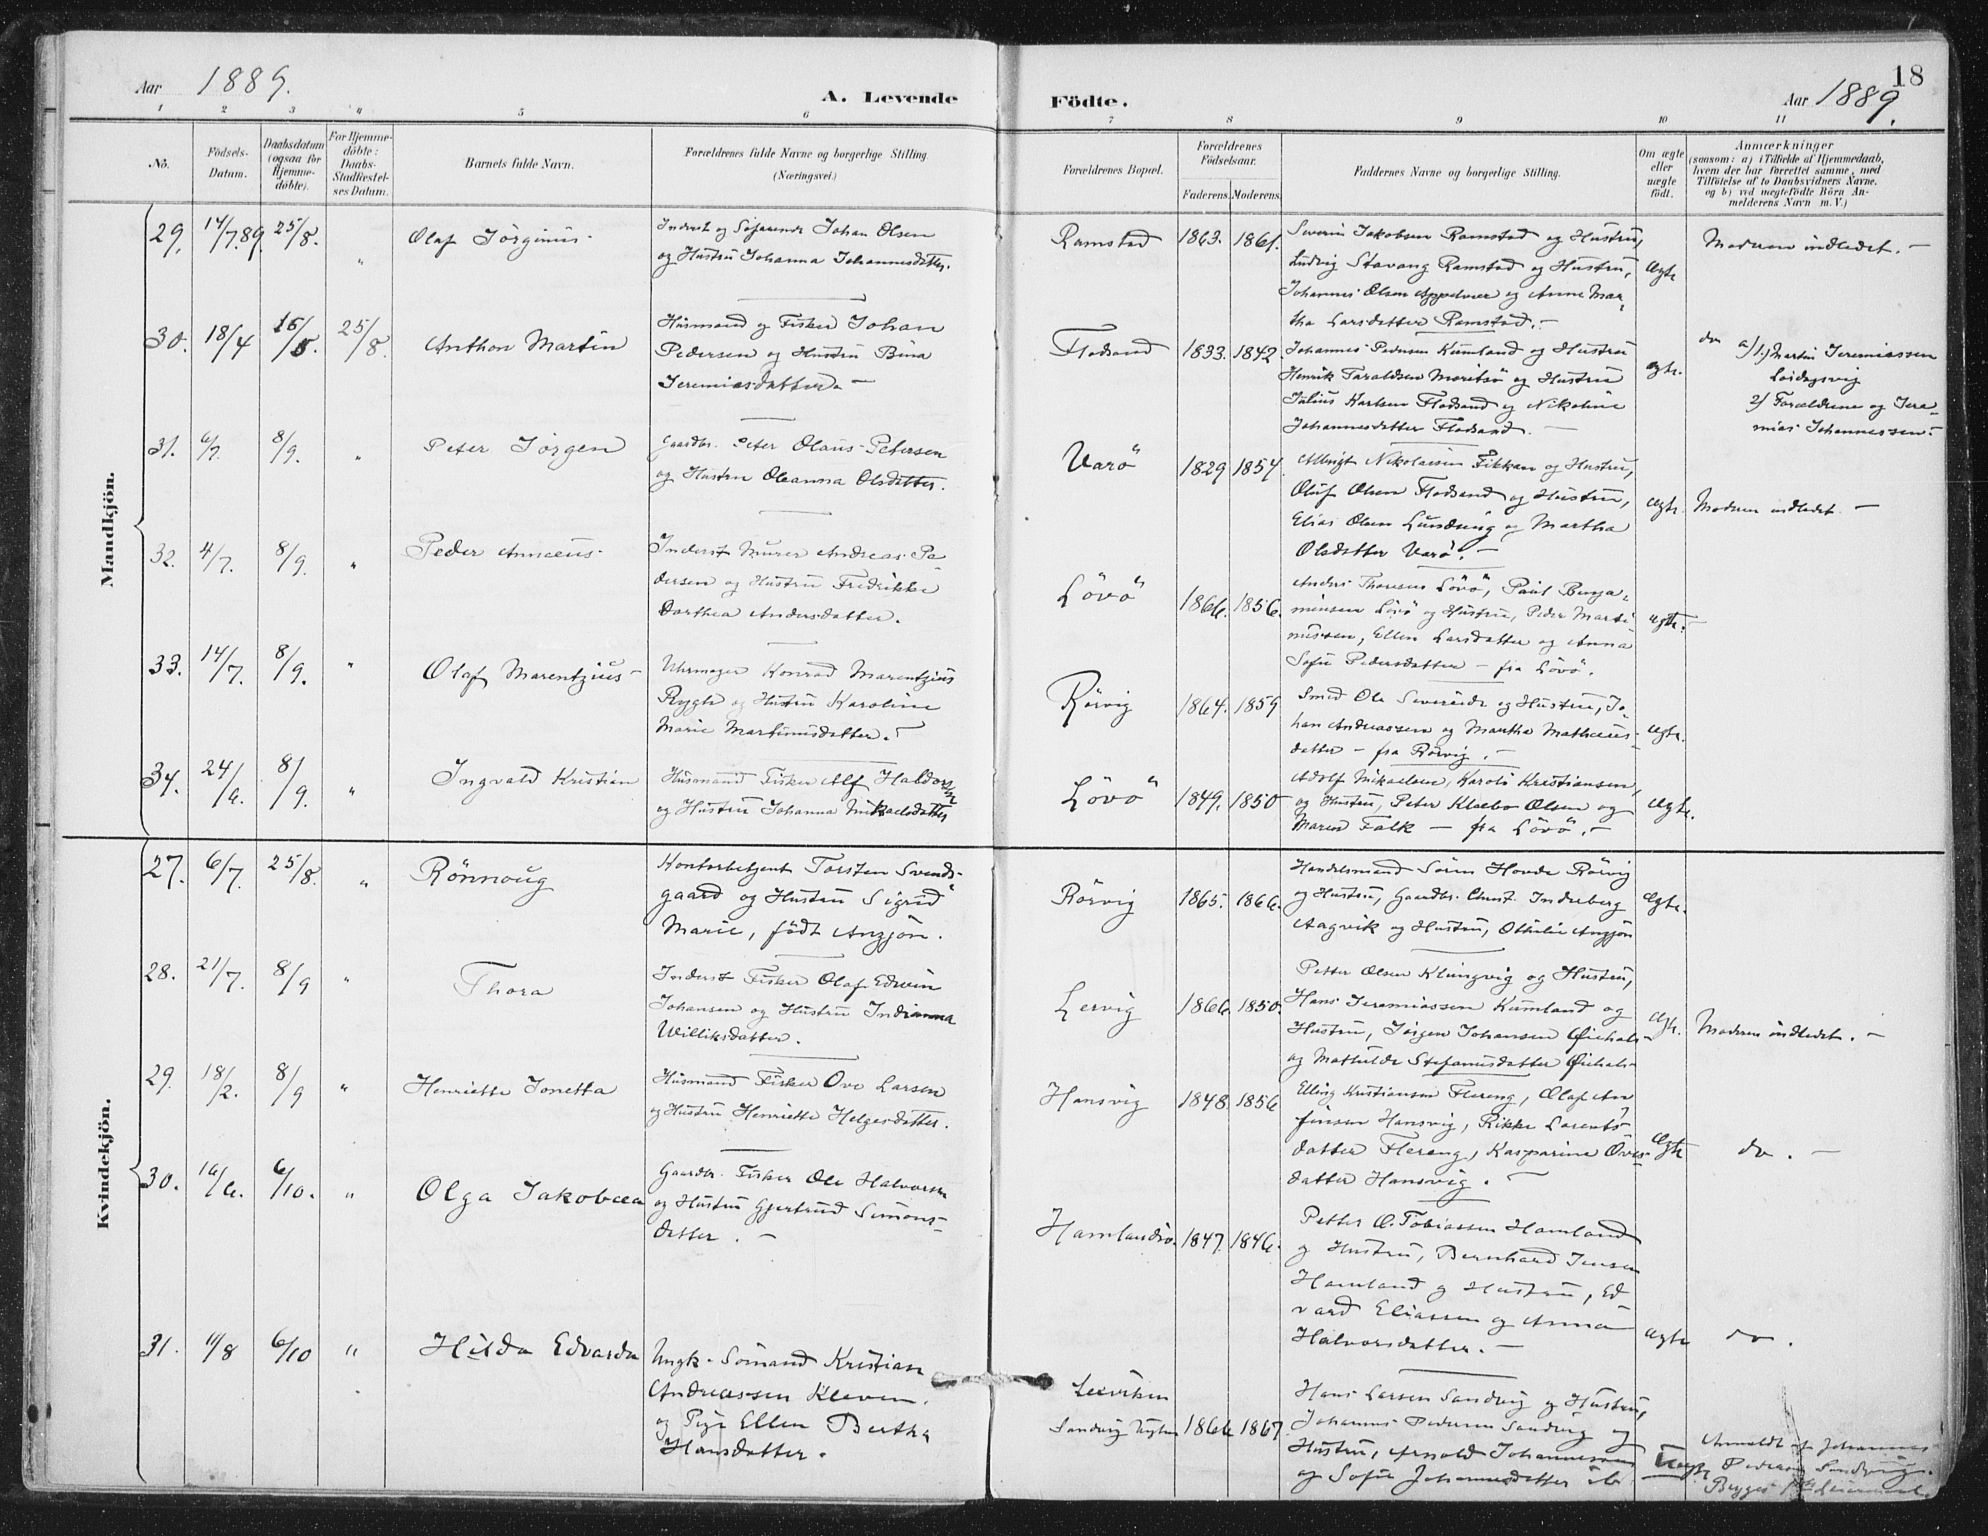 Aar 1889.
A. Levende Födte.
Aar 1889.
18
1 2 3 4 5 6 7 8 9 10 11
No.
Födsels-Datum.
Daabsdatum (ogsaa for Hjemme-döbte).
For Hjemme-döbte: Daabs-Stadfæstel-ses Datum.
Barnets fulde Navn.
Forældrenes fulde Navne og borgerlige Stilling (Næringsvei.)
Forældrenes Bopæl.
Forældrenes Födselsaar.
Faderens. Moderens.
Faddernes Navne og borgerlige Stilling.
Om ægte eller uægte födt.
Anmærkninger
(saasom: a) i Tilfælde af Hjemmedaab, hvem der har forrettet samme, med Tilföielse af to Daabsvidners Navne. og b) ved uægtefödte Börn An-melderens Navn m. V.)
Mandkjön.
29. 14/7 89. 25/8. " Olaf Jörginius
Inderst og Söfarende Johan Olsen
og Hustru Johanna Johannesdatter.
Ramstad 1863. 1861.
Severin Jakobsen Ramstad og Hustru,
Ludvig Stavang Ramstad og Hustru,
Johannes Olsen Appelvær og Anne Mar-
tha Larsdatter Ramstad.
ægte
Moderen indledet.
30. 18/4 25/8. Anthon Martin
Husmand og Fisker Johan
Pedersen og Hustru Bina
Jeremiasdatter
Flosand 1833. 1842
Johannes Pedersen Kumland og Hustru
Henrik Taraldsen Moritsö og Hustru
Julius Karlsen Flosand og Nikoline
Johannesdatter Flosand.
ægte.
do a/ 1/ Martin Jeremiassen
2/ Forældrene og Jere-
mias Johannessen.
31. 6/7. 8/9. " Peter Jörgen
Gaardbr. Peter Olaus Petersen
og Hustru Oleanna Olsdatter.
Varö 1829 1854.
Albrigt Nikolaisen Fikkan og Hustru,
Oluf Olsen Flosand og Hustru,
Elias Olsen Lundring og Martha
Olsdatter Varö.
ægte.
Moderen indledet.
32. 4/7. 8/9. " Peder Annæus
Inderst Murer Andreas Pe-
dersen og Hustru Fredrikke
Dorthea Andersdatter.
Lövö 1866. 1856.
Anders Thoresen Lövö, Paul Benja-
minsen Lövö og Hustru, Peder Marti-
nussen, Ellen Larsdatter og Anna
Sofie Pedersdatter - fra Lövö.
ægte.
33. 14/7. 8/9. " Olaf Marentzius
Uhrmager Konrad Marentzius
Rygh og Hustru Karoline
Marie Martinusdatter.
Rörvig 1864. 1859
Smed Ole Severeide og Hustru, Jo-
han Andreassen og Martha Mathæus-
datter - fra Rörvig.
ægte.
34. 24/6. 8/9. " Ingvald Kristian
Husmand Fisker Alf Haldorsen
og Hustru Johanna Mikaelsdatter
Lövö 1849. 1850
Adolf Mikaelsen, Karoli Kristiansen,
og Hustru, Peter Klæbo Olsen og
Maren Falk - fra Lövö.
ægte.
Kvindekjön.
27. 6/7. 25/8. " Rönnoug
Kontorbetjent Torsten Svends-
gaard og Hustru Sigrid
Marie, född Angjön.
Rörvig 1865. 1866.
Handelsmand Sörin Hovde Rörvig
og Hustru, Gaardbr. Christ. Indreberg
Aagvik og Hustru, Othilie Angjön
ægte.
28. 21/7. 8/9 " Thora
Inderst Fisker Olaf Edvin
Johansen og Hustru Indianna
Williksdatter.
Lervig 1866. 1850.
Petter Olsen Klungvig og Hustru,
Hans Jeremiassen Kumland og
Hustru, Jörgen Johansen Öiehals
og Mathilde Stefanusdatter Öiehals
ægte.
Moderen indledet.
29. 18/2. 8/9 " Henriette Jonetta
Husmand Fisker Ove Larsen
og Hustru Henriette Helgesdatter.
Hansvig 1848. 1856
Elling Kristiansen Flereng, Olaf An
finsen Hansvig, Rikke Larents-
datter Flereng, Kasparine Oves-
datter Hansvig.
ægte
do.
30. 16/6. 6/10. " Olga Jakobæa
Gaardbr. Fisker Ole Halvorsen
og Hustru Gjertrud Simons-
datter.
Hamlandsö. 1847. 1846.
Petter O. Tobiassen Hamland
og Hustru, Bernhard Jensen
Hamland og Hustru, Ed
vard Eliassen og Anna
Halvorsdatter.
ægte
do.
31. 11/8 6/10 " Hilda Edvarda
Ungk. Sömand Kristian
Andreassen Kleven.
og Pige Ellen Bertha
Hansdatter.
Sandvig 1866 1867.
Hans Larsen Sandvig og Hustru,
Johannes Pedersen Sandvig og
Hustru, Arnold Johannessen
og Sofie Johannesdatter ib.
Uægte
Anmeldt af Johannes
Pedersen Sandvig.